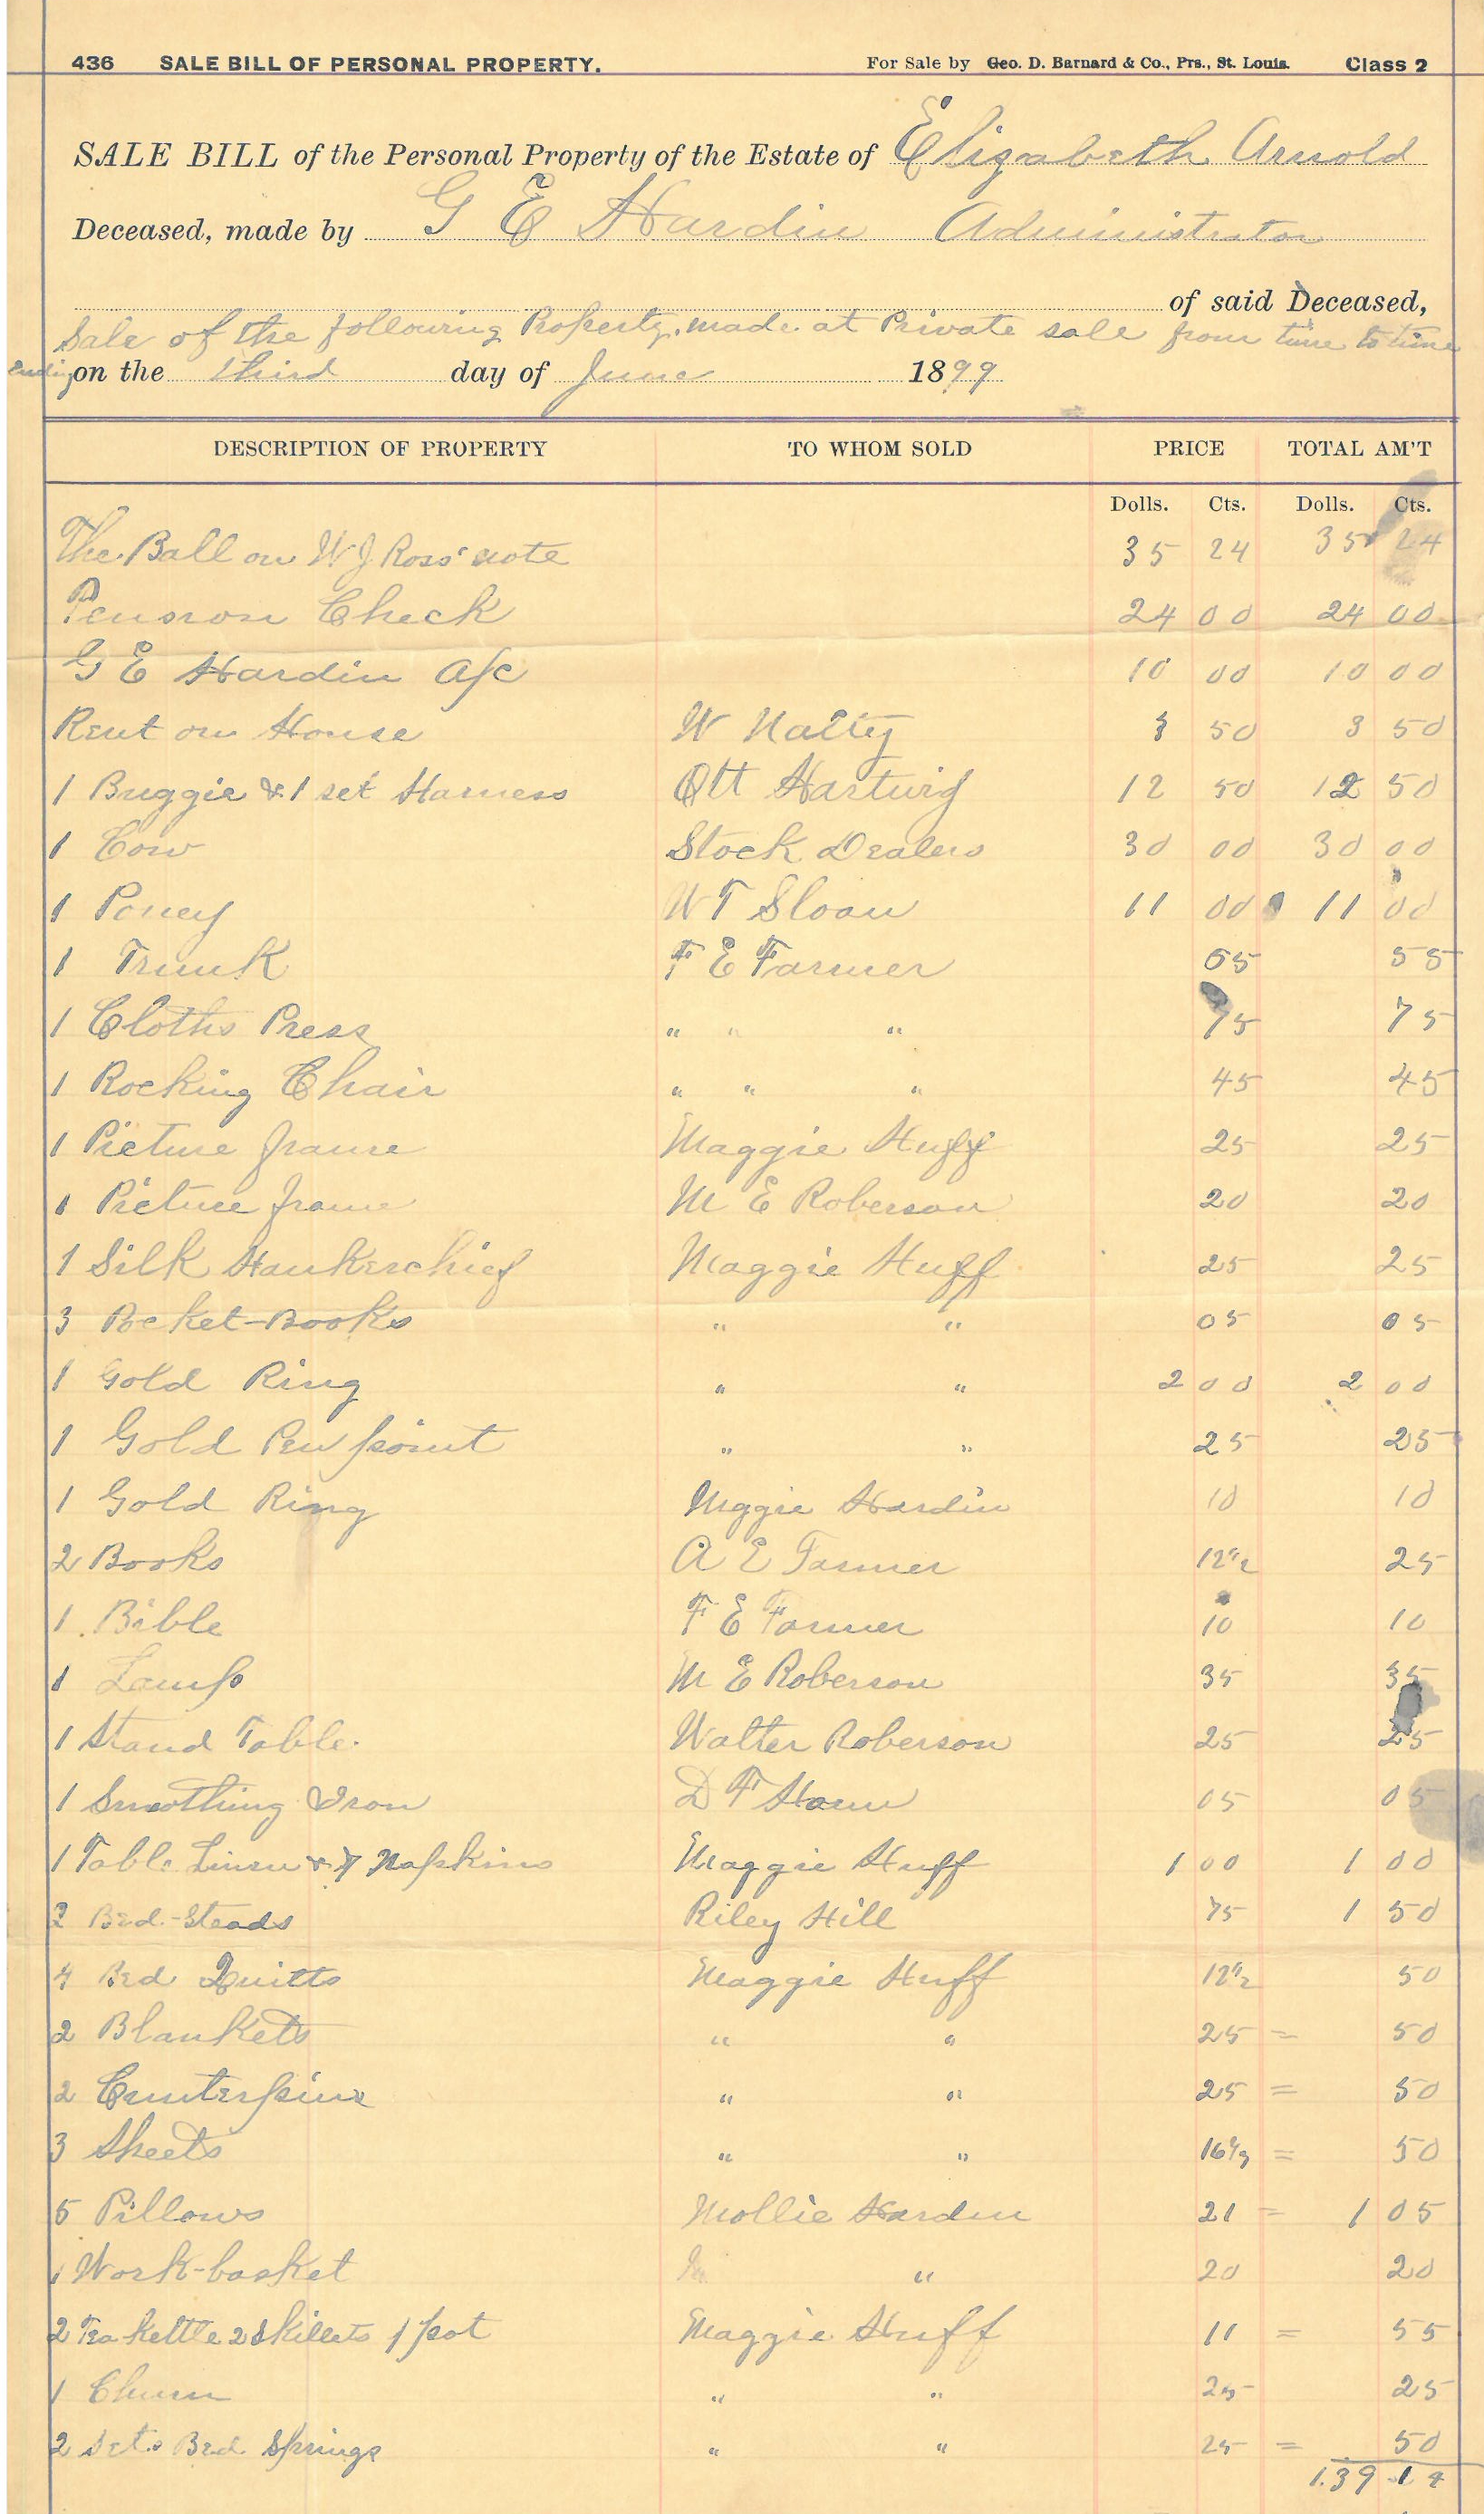 436 SALE BILL OF PERSONAL PROPERTY. For Sale by Geo. D. Barnard & Co., Prs., St. Louis. Class 2
SALE BILL of the Personal Property of the Estate of Elizabeth Arnold
Deceased, made by G E Hardin Administrator
of said Deceased,
Sale of the following Property. made at Private sale from time to time
Ending on the third day of June 1899
DESCRIPTION OF PROPERTY TO WHOM SOLD PRICE TOTAL AM'T
Dolls. Cts. Dolls. Cts.
The Ball on W J Ross' note 35 24 35 24
Pension Check 24 00 24 00
G E Hardin A/c 10 00 10 00
Rent on House W Natty 3 50 3 50
1 Buggie & 1 set Harness Ott Hartwig 12 50 12 50
1 Cow Stock Dealers 30 00 30 00
1 Poney W T Sloan 11 00 11 00
1 Trunk F E Farmer 55 55
1 Cloths Press " " " 75 75
1 Rocking Chair " " " 45 45
1 Picture frame Maggie Huff 25 25
1 Picture frame M E Roberson 20 20
1 Silk Hankerchief Maggie Huff 25 25
3 Pocket-Books " " 05 05
1 Gold Ring " " 2 00 2 00
1 Gold Pen point " " 25 25
1 Gold Ring Maggie Hardin 10 10
2 Books A E Farmer 12 1/2 25
1 Bible F E Farmer 10 10
1 Lamp M E Roberson 35 35
1 Stand Table. Walter Roberson 25 25
1 Smothing Iron D F 05 05
1 Table Linen & 7 Napkins Maggie Huff 1 00 1 00
2 Bed-Steads Riley Hill 75 1 50
4 Bed Quilts Maggie Huff 12 1/2 50
2 Blankets " " 25 = 50
2 Counterpins " " 25 = 50
3 Sheets " " 16 2/3 = 50
5 Pillows Mollie Hardin 21 = 1 05
1 Work-basket " 20 20
2 Tea kettle 2 Skillets 1 pot Maggie Huff 11 = 55
1 Churn " " 25 25
2 Sets Bed Springs " " 25 = 50
139 14